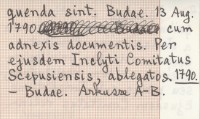 quenda sint. Budae. 13 Aug.
1790. cum
adnexis documentis. Per
ejusdem Inclyti Comitatus
Scepusiensis, ablegatos. 1790.
– Budae. Arkusze A-B.